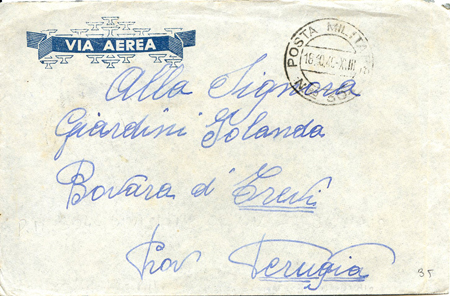 VIA AEREA
POSTA MILITARE
Alla Signora
Giardini Iolanda
Bovara d' Trevi
Prov Perugia
35